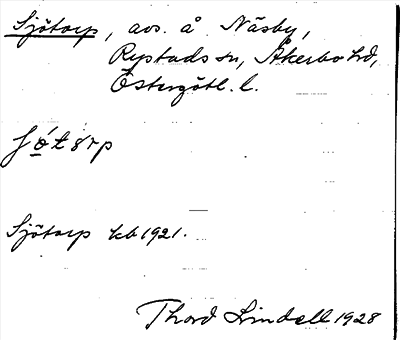 Sjötorp, avs. å Näsby,
Rystads sn, Åkerbo hd,
Östergötl. l.
Sjötorp kb 1921.
Thord Lindell 1928